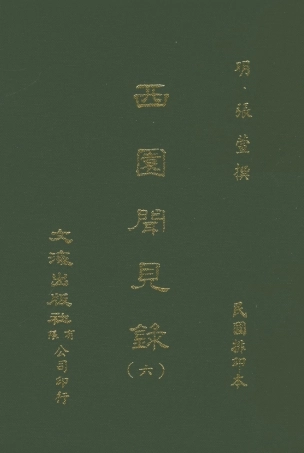 明·張萱撰
民國排印本
西園聞見錄
(六)
文海出版社有限公司印行